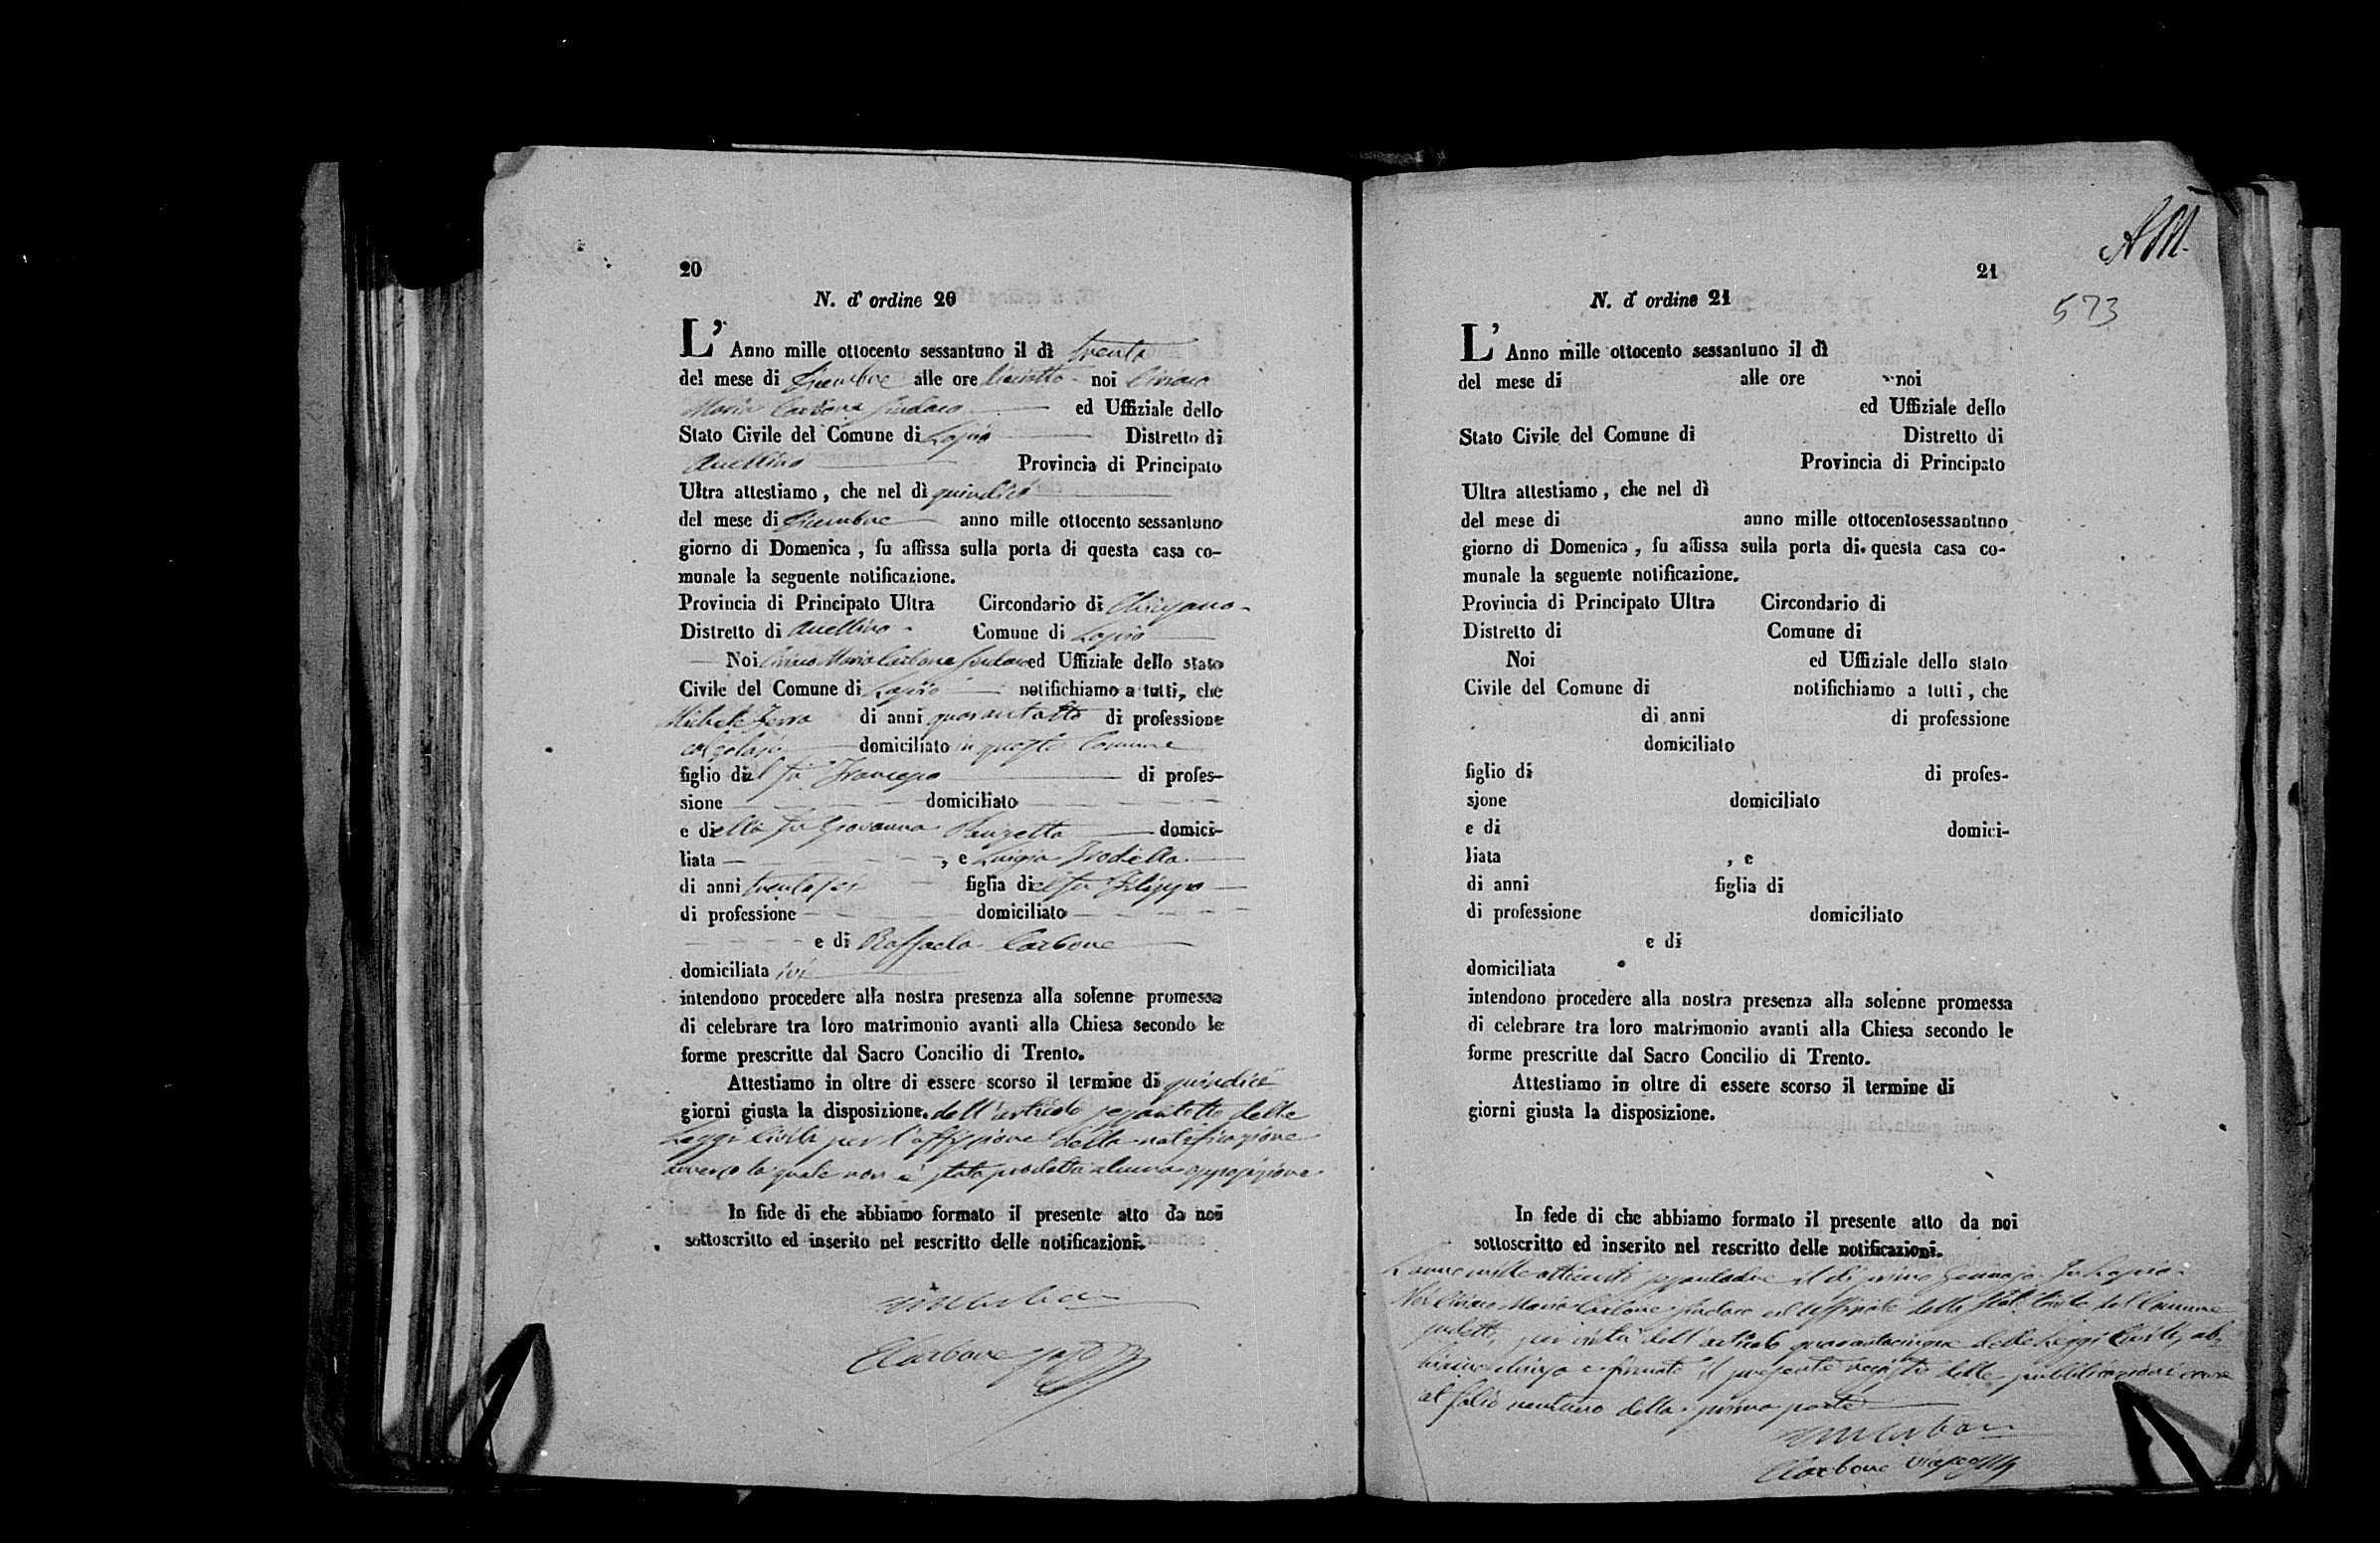 20
N. d' ordine 20
L' Anno mille ottocento sessantuno il dì trenta
del mese di Dicembre alle ore diciotto noi Ciriaco
Maria Carbone Sindaco ed Uffiziale dello
Stato Civile del Comune di Lapio Distretto di
Avellino Provincia di Principato
Ultra attestiamo, che nel dì quindici
del mese di Dicembre anno mille ottocento sessantuno
giorno di Domenica, fu affissa sulla porta di questa casa co-
munale la seguente notificazione.
Provincia di Principato Ultra Circondario di
Distretto di Avellino Comune di Lapio
Noi Ciriaco Maria Carbone Sindaco ed Uffiziale dello stato
Civile del Comune di Lapio notifichiamo a tutti, che
Michele di anni quarantotto di professione
calzolajo domiciliato in questo Comune
figlio del fu Francesco di profes-
sione domiciliato
e della fu Giovanna domici-
liata , e Luigia
di anni trentasei figlia del fu Filippo
di professione domiciliato
e di Raffaela Carbone
domiciliata ivi
intendono procedere alla nostra presenza alla solenne promessa
di celebrare tra loro matrimonio avanti alla Chiesa secondo le
forme prescritte dal Sacro Concilio di Trento.
Attestiamo in oltre di essere scorso il termine di quindici
giorni giusta la disposizione. dell'articolo sessantotto delle
Leggi Civili per l'affissione della notificazione
avverso la quale non è stata prodotta alcuna opposizione
In fide di che abbiamo formato il presente atto da noi
sottoscritto ed inserito nel rescritto delle notificazioni.
Carbone
21
AM
573
N. d' ordine 21
L' Anno mille ottocento sessantuno il dì
del mese di alle ore noi
ed Uffiziale dello
Stato Civile del Comune di Distretto di
Provincia di Principato
Ultra attestiamo, che nel dì
del mese di anno mille ottocentosessantuno
giorno di Domenica, fu affissa sulla porta di questa casa co-
munale la seguente notificazione.
Provincia di Principato Ultra Circondario di
Distretto di Comune di
Noi ed Uffiziale dello stato
Civile del Comune di notifichiamo a tutti, che
di anni di professione
domiciliato
figlio di di profes-
sione domiciliato
e di domici-
liata , e
di anni figlia di
di professione domiciliato
e di
domiciliata
intendono procedere alla nostra presenza alla solenne promessa
di celebrare tra loro matrimonio avanti alla Chiesa secondo le
forme prescritte dal Sacro Concilio di Trento.
Attestiamo in oltre di essere scorso il termine di
giorni giusta la disposizione.
In fede di che abbiamo formato il presente atto da noi
sottoscritto ed inserito nel rescritto delle notificazioni.
L'anno mille ottocento sessantadue il di primo Gennajo In Lapio
Noi Ciriaco Maria Carbone Sindaco ed Uffiziale dello Stato Civile del Comune
sudetto, per virtù dell'articolo quarantacinque delle Leggi Civili, ab-
biamo chiuso e firmato il presente registro delle pubblicazioni
al folio ventuno della prima parte
Carbone